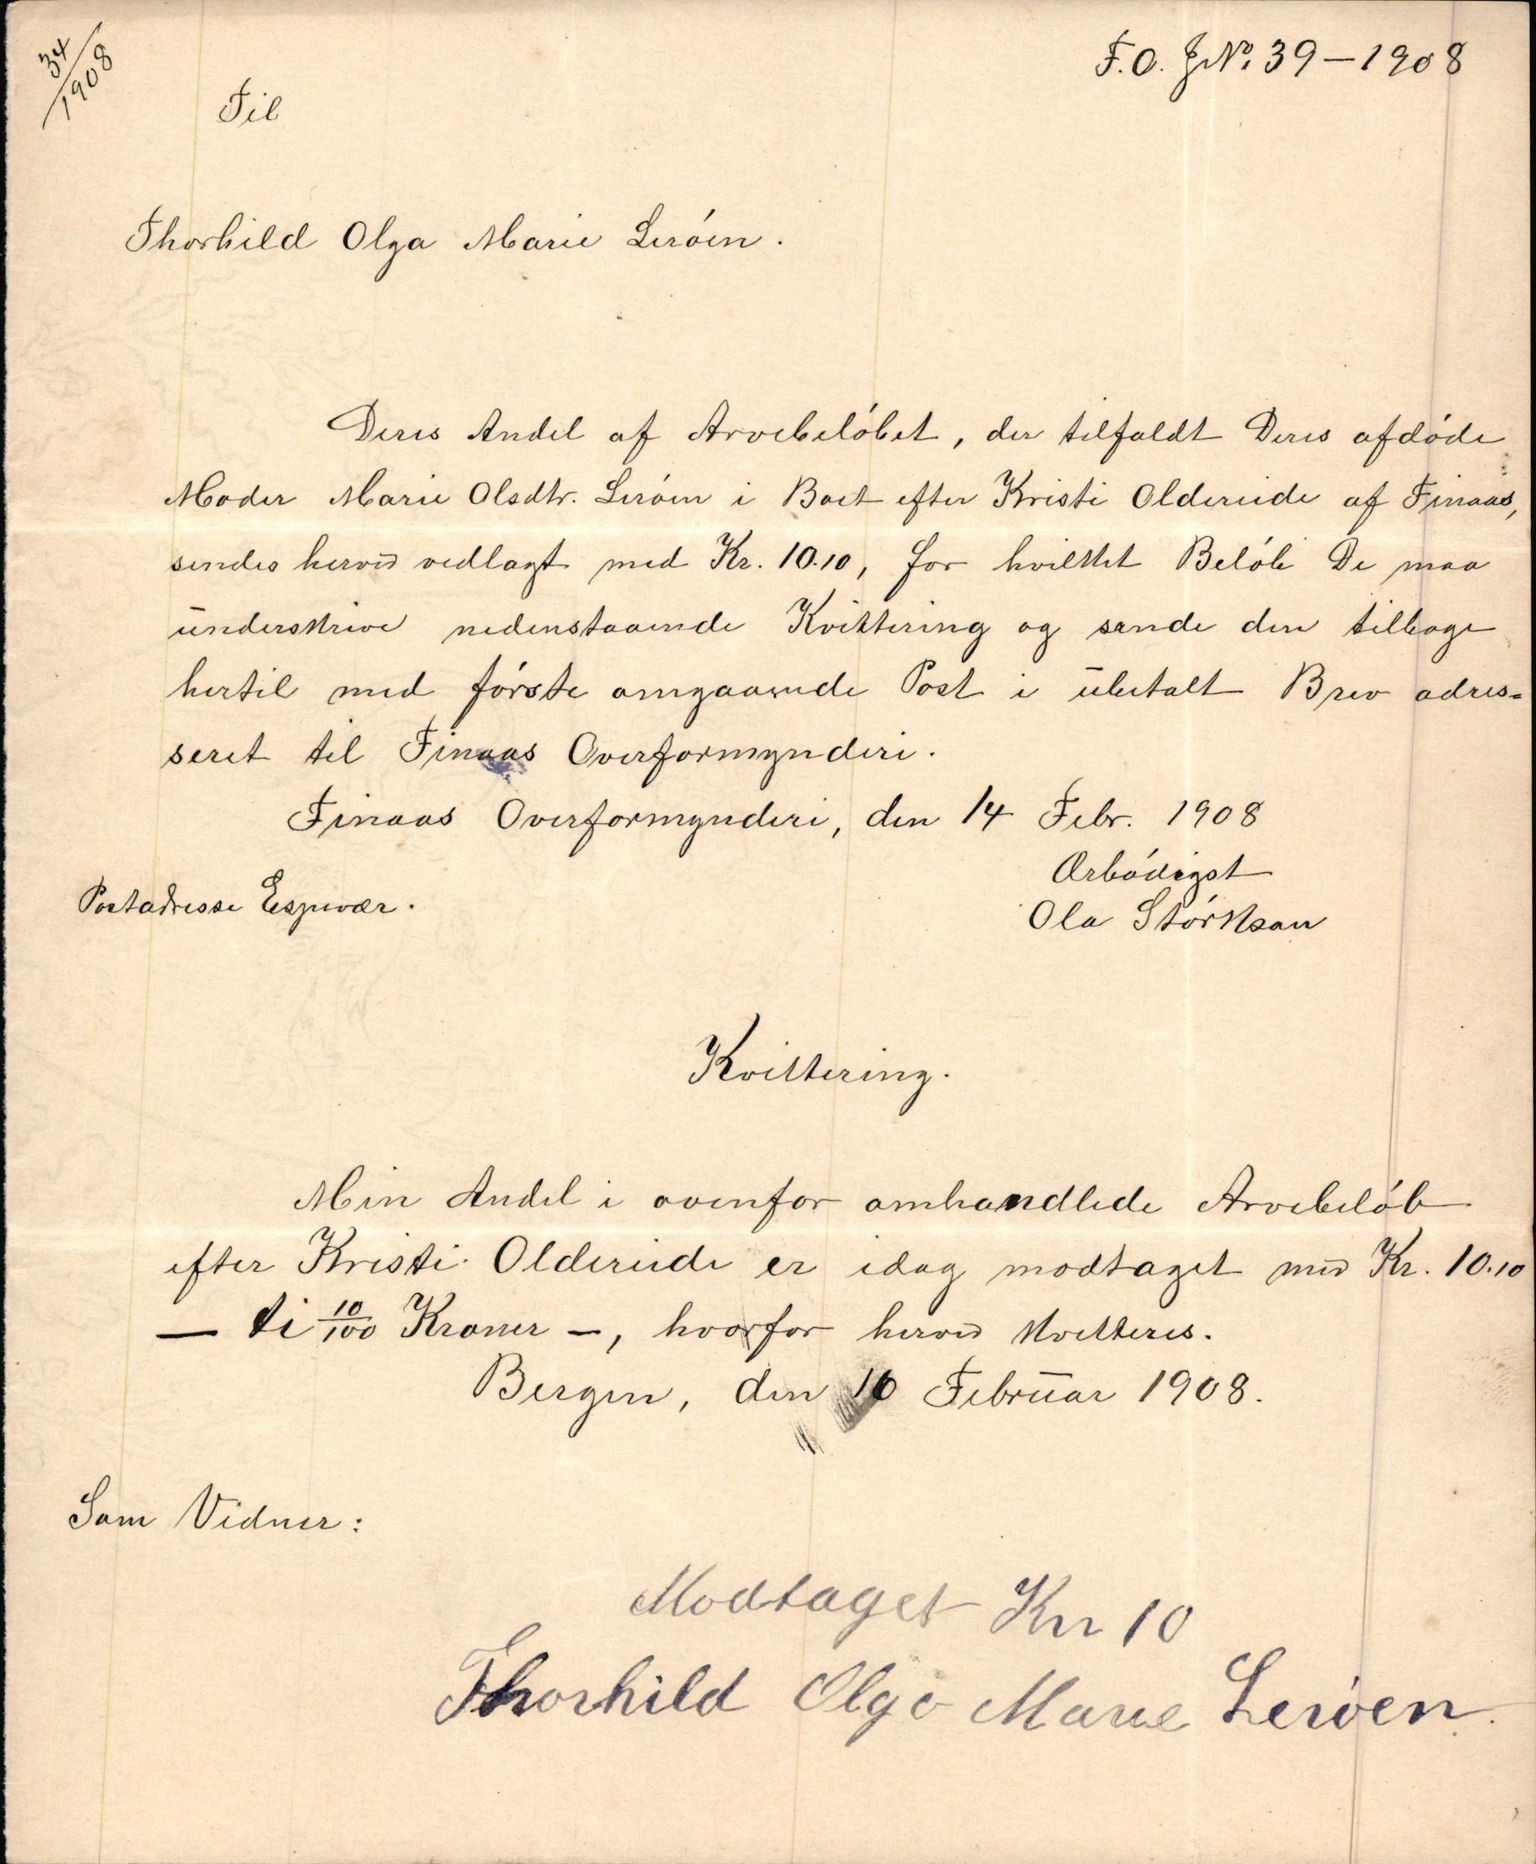 34/1908
F. O. J№. 39 – 1908
Til
Thorhild Olga Marie Lerøen.
Deres Andel af Arvebeløbet, der tilfaldt Deres afdøde
Moder Marie Olsdtr. Lerøen i Boet efter Kristi Oldereide af Finaas,
sendes herved vedlagt med Kr. 10.10, for hvilket Beløb De maa
underskrive nedenstaaende Kvittering og sende den tilbage
hertil med første omgaaende Post i ubetalt Brev adres=
seret til Finaas Overformynderi.
Finaas Overformynderi, den 14 Febr. 1908
Ærbødigst
Postadresse Espevær.
Ola Størkson
Kvittering.
Min Andel i ovenfor omhandlede Arvebeløb
efter Kristi Oldereide er idag modtaget med Kr. 10.10
— ti 10/100 Kroner –, hvorfor herved kvitteres.
Bergen, den 16 Februar 1908.
Som Vidner:
Modtaget Kr 10
Thorhild Olga Marie Lerøen.